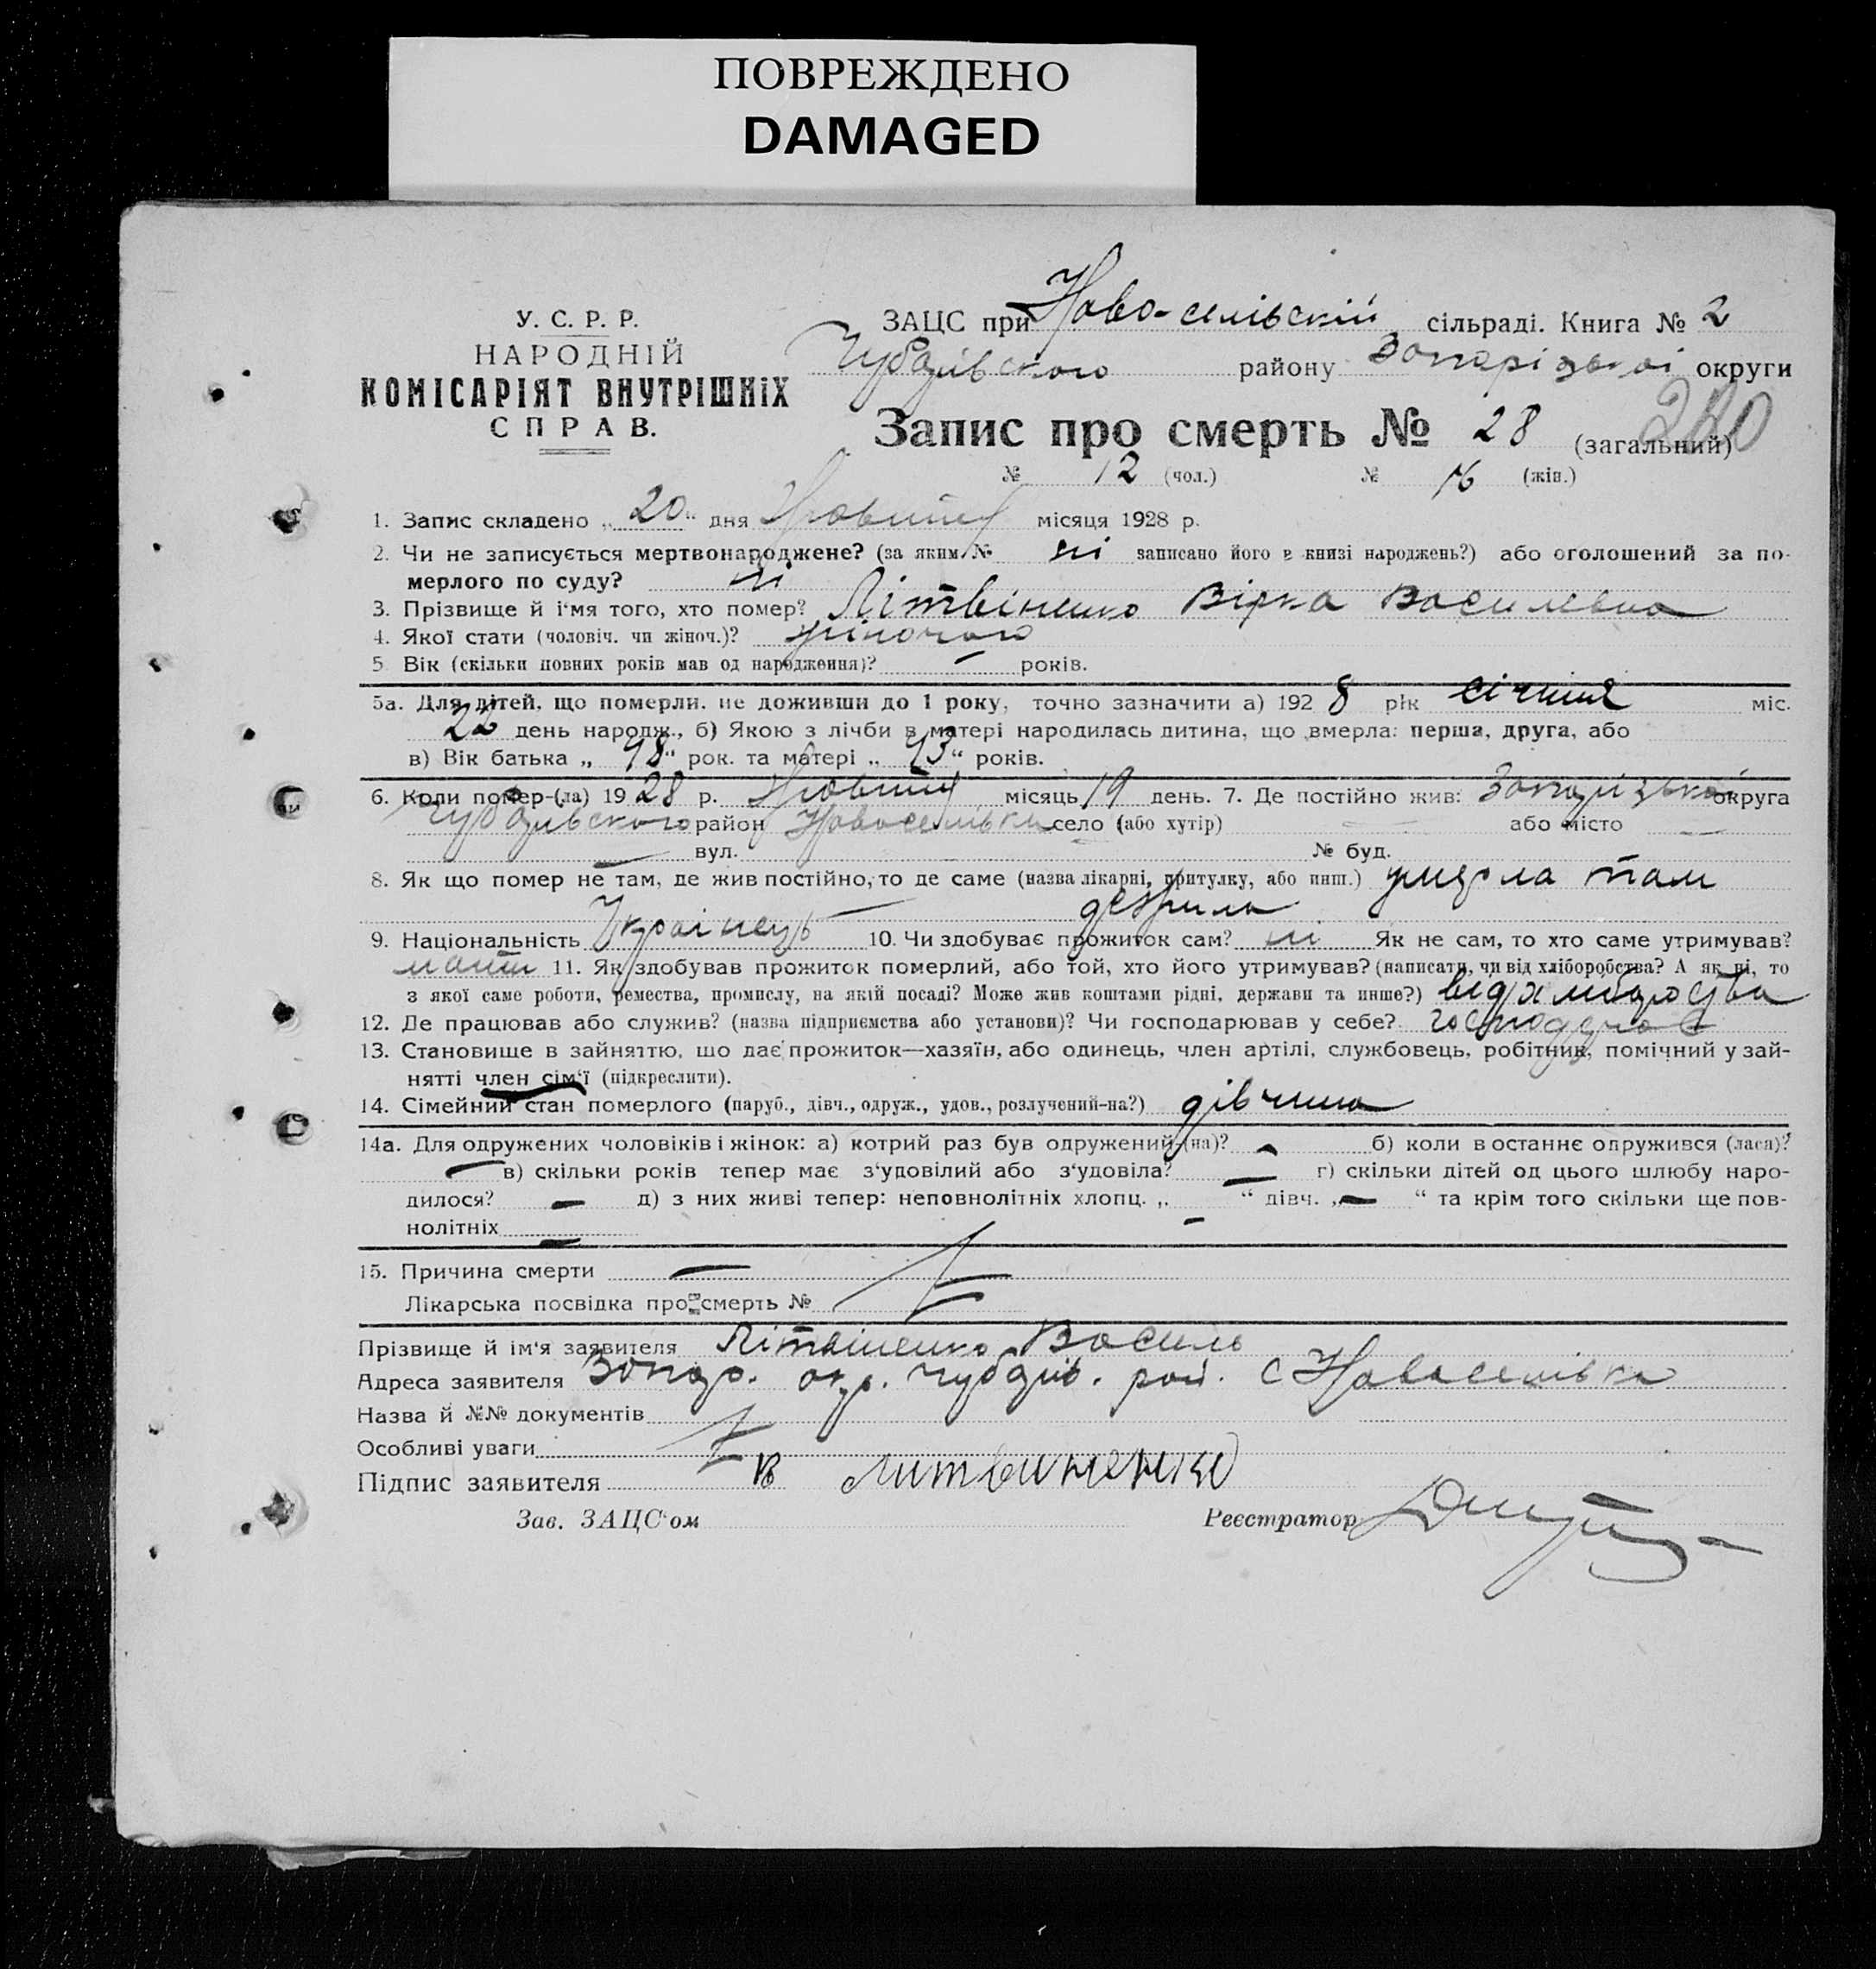 ПОВРЕЖДЕНО
DAMAGED
У. С. Р. Р.
НАРОДНІЙ
КОМІСАРІЯТ ВНУТРІШНІХ
СПРАВ.
ЗАЦС при Ново-селівскій сільраді. Книга № 2
Чубарівського району Запорізької округи
Запис про смерть № 28 (загальний)
№ 12 (чол.) № 16 (жін.)
1. Запис складено „ 20 “ дня місяця 1928 р.
2. Чи не записується мертвонароджене? (за яким № ні записано його в книзі народжень?) або оголошений за по-
мерлого по суду? ні
3. Прізвище й і'мя того, хто помер? Літвіненко Вірка Василевна
4. Якої стати (чоловіч. чи жіноч.)? жіночого
5. Вік (скільки повних років мав од народження)? - років.
5а. Для дітей, що померли. не доживши до 1 року, точно зазначити а) 192 8 рік січння міс.
22 день народж., б) Якою з лічби в матері народилась дитина, що вмерла: перша, друга, або
в) Вік батька „ 48 “ рок. та матері „ 43 “ років.
6. Коли помер-(ла) 19 28 р. місяць 19 день. 7. Де постійно жив: Запорізької округа
Чубарівського район Новоселівка село (або хутір) — або місто —
— вул. № буд.
8. Як що помер не там, де жив постійно, то де саме (назва лікарні, притулку, або инш.) умерла там
де жила
9. Національність Українець 10. Чи здобуває прожиток сам? ні Як не сам, то хто саме утримував?
мати 11. Як здобував прожиток померлий, або той, хто його утримував? (написати, чи від хліборобства? А як ні, то
з якої саме роботи, ремества, промислу, на якій посаді? Може жив коштами рідні, держави та инше?) від хліборобства
12. Де працював або служив? (назва підприємства або установи)? Чи господарював у себе?
13. Становище в зайняттю, що дає прожиток—хазяїн, або одинець, член артілі, службовець, робітник, помічний у зай-
нятті член сім'ї (підкреслити).
14. Сімейний стан померлого (паруб., дівч., одруж., удов., розлучений-на?) дівчина
14а. Для одружених чоловіків і жінок: а) котрий раз був одружений-(на)? - б) коли в останнє одружився (лася)?
— в) скільки років тепер має з'удовілий або з'удовіла? — г) скільки дітей од цього шлюбу наро-
дилося? — д) з них живі тепер: неповнолітніх хлопц. „ - “ дівч. „ — “ та крім того скільки ще пов-
нолітніх —
15. Причина смерти —
Лікарська посвідка про смерть №
Прізвище й ім'я заявителя Літвіненко Василь
Адреса заявителя Запор. окр. Чубарів. рай. с Новоселівка
Назва й №№ документів
Особливі уваги
Підпис заявителя В Литвиненко
Зав. ЗАЦС'ом Реєстратор